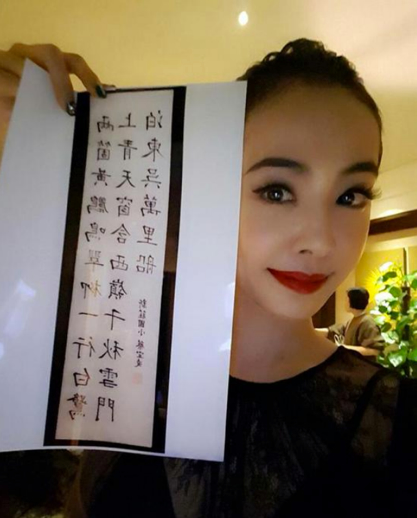 兩箇黃鸝鳴翠柳一行白鷺
上青天窗含西嶺千秋雪門
泊東吳萬里船
新莊國小